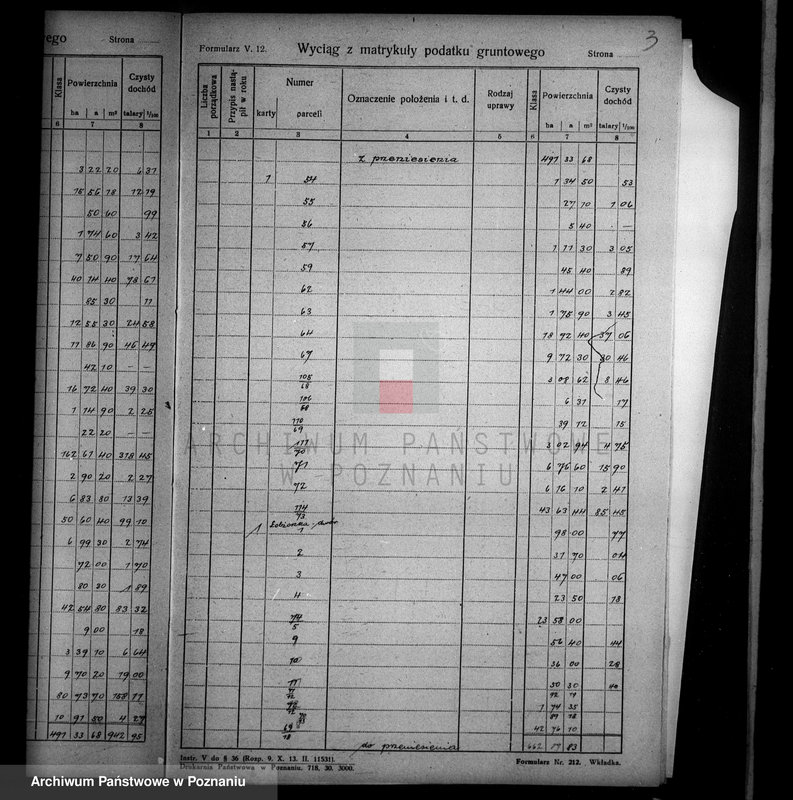 ego Strona
Klasa Powierzchnia Czysty dochód
ha a m² talary 1/100
6 7 8
3 22 20 6 37
15 56 78 12 19
50 60 99
1 74 60 3 42
7 50 90 17 64
40 14 40 78 67
85 30 11
12 55 30 24 58
11 86 90 46 49
42 10 — —
16 72 40 39 30
1 14 90 2 25
22 20 —
162 61 40 378 45
2 90 20 2 27
6 83 80 13 39
50 60 40 99 10
6 99 30 2 74
72 00 1 70
80 30 1 89
42 54 80 83 32
9 00 18
3 39 10 6 64
9 70 20 19 00
80 73 70 158 11
10 91 50 4 27
497 33 68 942 95
Formularz V. 12. Wyciąg z matrykuły podatku gruntowego Strona 3
Liczba porządkowa
Przypis nastąpił w roku
Numer
karty parceli
Oznaczenie położenia i t. d.
Rodzaj uprawy
Klasa
Powierzchnia
ha a m²
Czysty dochód
talary 1/100
1 2 3 4 5 6 7 8
z przeniesienia 497 33 68
1 54 1 34 50 53
55 27 10 1 06
56 5 40 . —
57 1 11 30 3 05
59 45 40 89
62 1 44 00 2 82
63 1 75 90 3 45
64 18 92 40 37 06
67 9 72 30 20 46
105/68 3 08 62 8 46
106/68 6 31 17
110/69 39 12 15
111/70 3 02 94 4 75
71 6 76 60 15 90
72 6 16 10 2 41
114/73 43 63 44 85 45
1 1 98 00 77
2 31 70 04
3 47 00 06
4 23 50 18
14/5 23 58 00
9 56 40 44
10 36 00 28
30 30 40
12 11
1 74 35
89 78
42 76 10
do przeniesienia 662 19 83
Instr. V do § 36 (Rozp. 9. X. 13. II. 11531).
Drukarnia Państwowa w Poznaniu. 718. 30. 3000.
Formularz Nr. 212. Wkładka.
ARCHIWUM PAŃSTWOWE
W POZNANIU
Archiwum Państwowe w Poznaniu